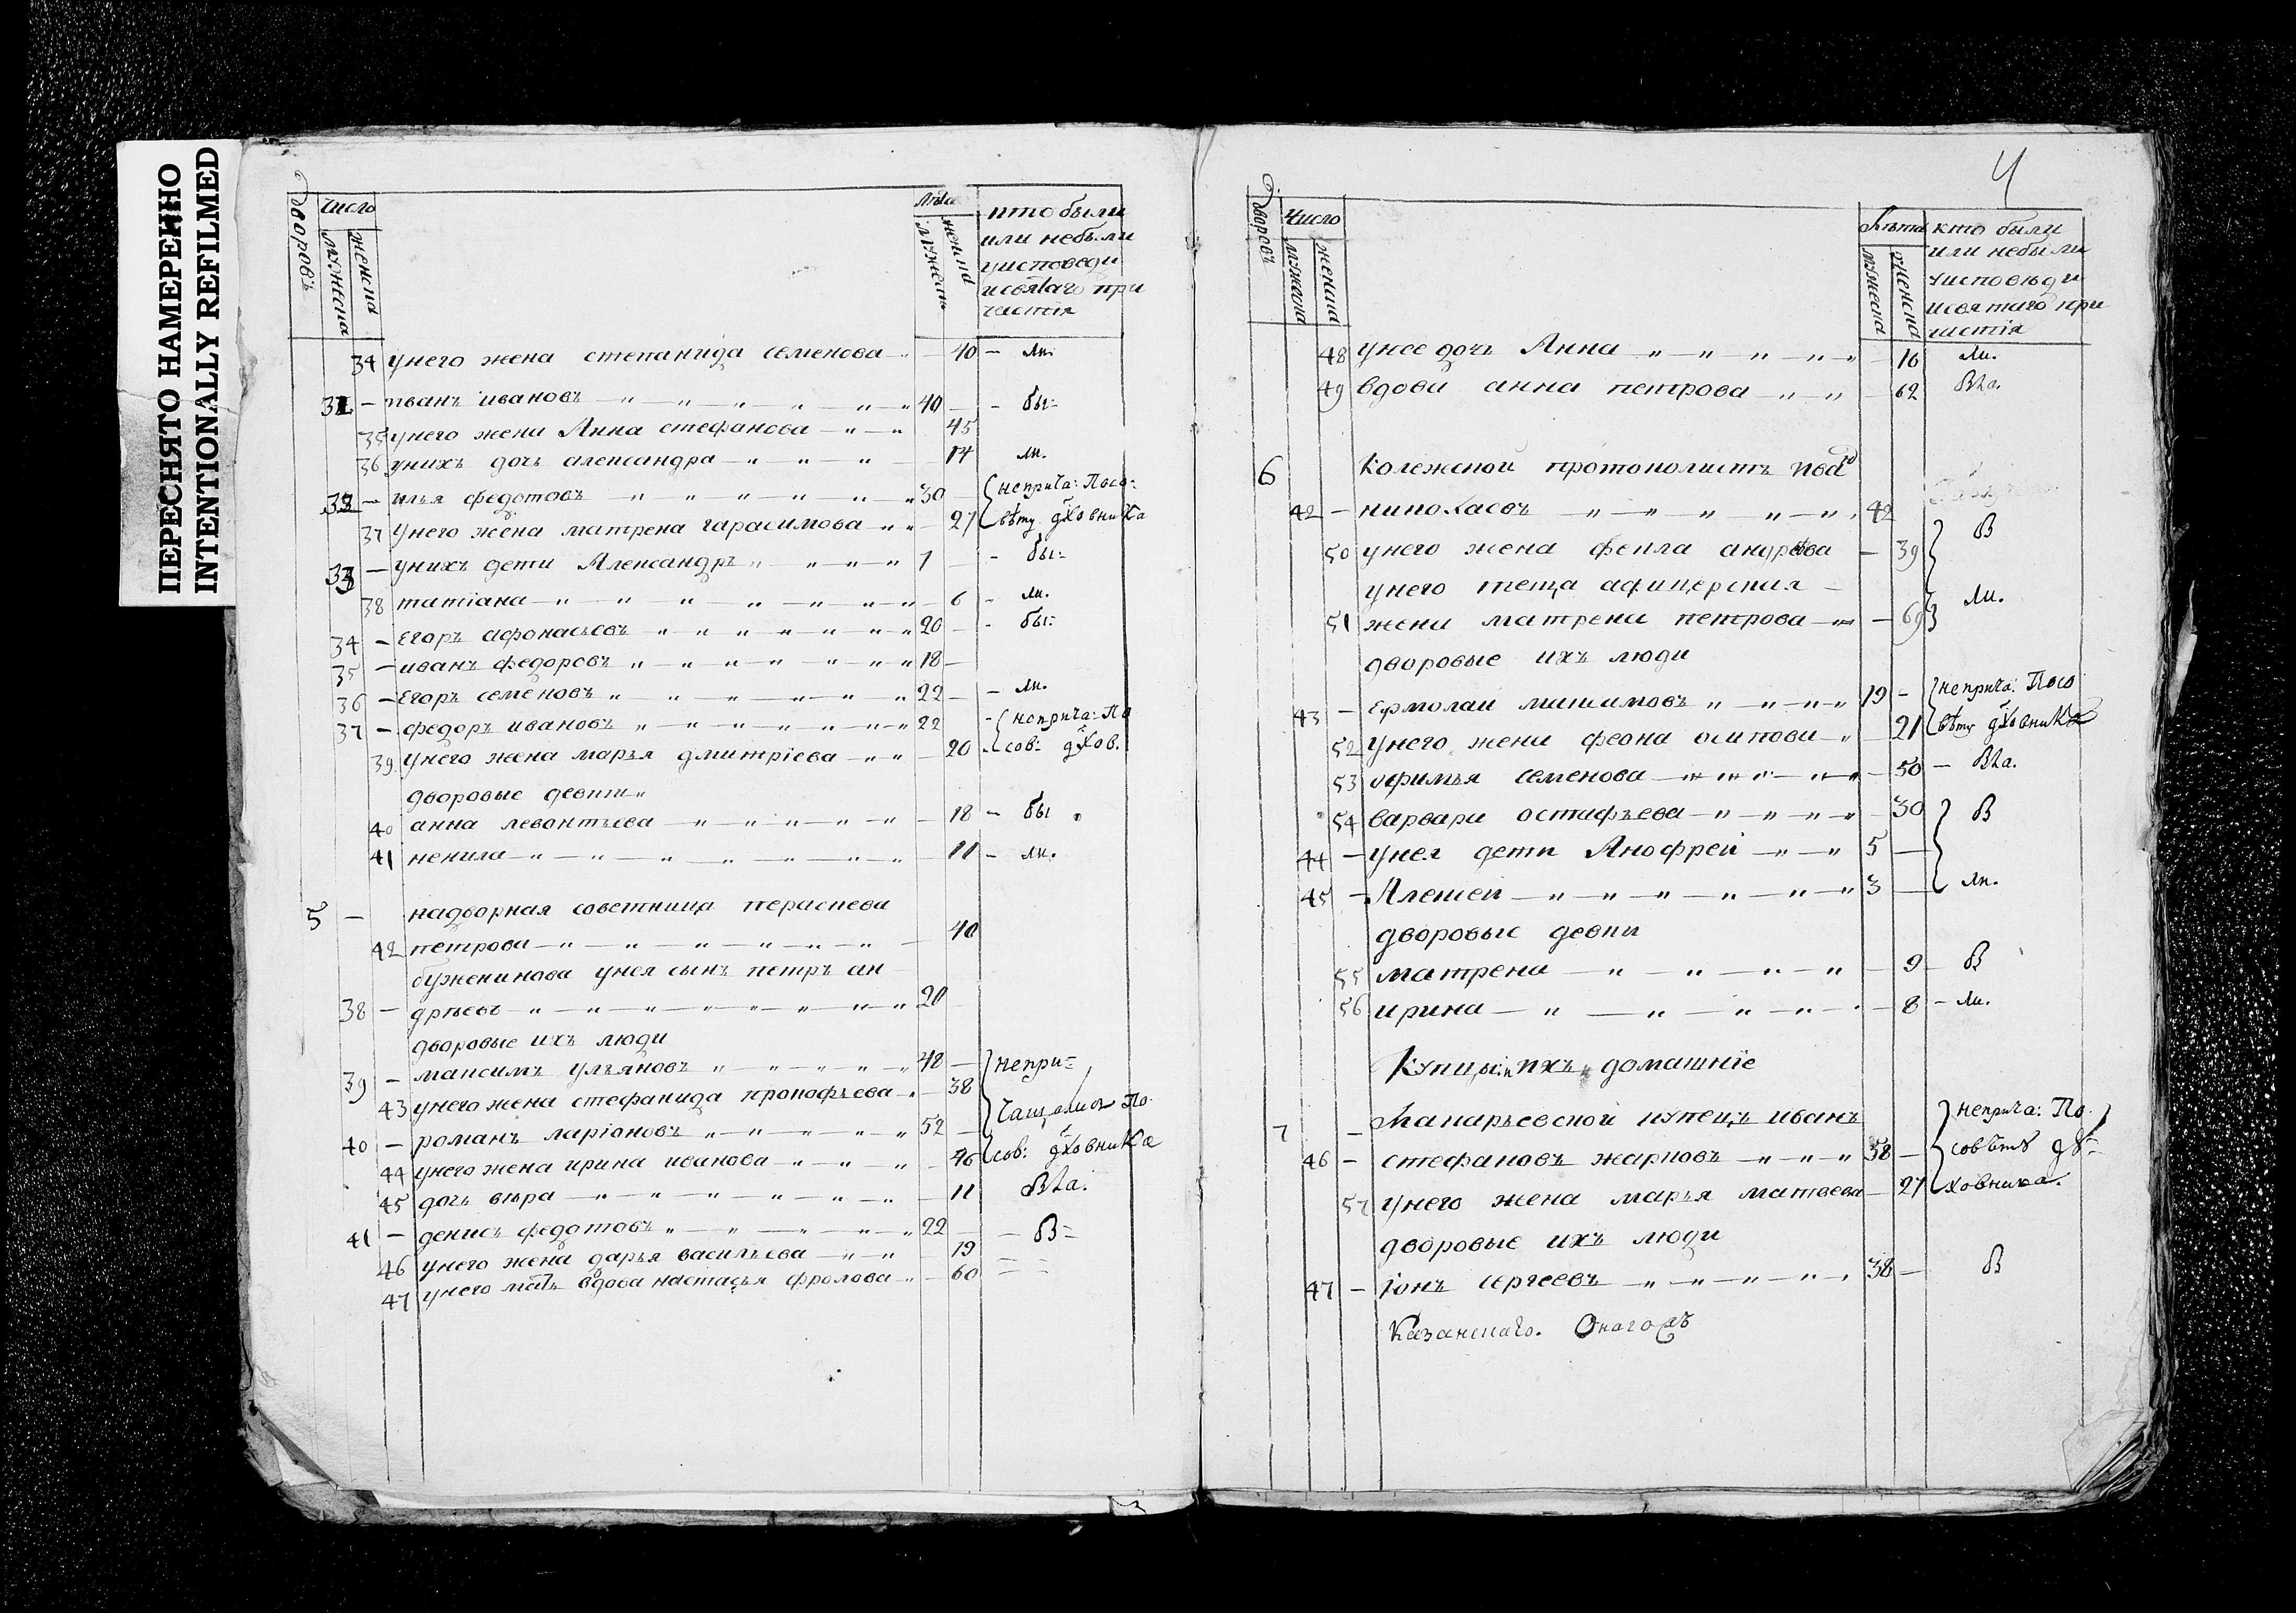 ПЕРЕСНЯТО НАМЕРЕННО
INTENTIONALLY REFILMED
дворовъ
Число
мужеска
женска
Лѣта
мужеск
женска
кто были
или небыли
уисповеди
исвятаго при
частія
34 унего жена степанида семенова 40 – ли.
31 – иванъ ивановъ 40 – бы:
35 унего жена Анна стефанова 45
36 унихъ дочь александра 14 ли.
32 – илья федотовъ 30 неприча: Посо-
37 унего жена матрена гарасимова 27 вѣту дховника
33 – унихъ дети Александръ 1 – бы:
38 татіана 6 – ли.
34 – егоръ афонасьевъ 20 – бы:
35 – иванъ федоровъ 18 –
36 – Егоръ семеновъ 22 – ли.
37 – федоръ ивановъ 22 неприча: По
39 унего жена марья дмитріева 20 сов: дхов.
дворовые девки
40 анна левонтьева 18 – бы
41 ненила 11 – ли.
5 – надворная советница
42 петрова 40
буженинова унея сынъ петръ ан
38 – дрѣевъ 20
дворовые ихъ люди
39 – максимъ ульяновъ 48 – непри=
43 унего жена стефанида прокофьева 38
40 – романъ ларіоновъ 52 – чащались По
44 унего жена ирина иванова 46 сов: дховника
45 дочь вѣра 11 Вла.
41 – денисъ федотовъ 22 – В=
46 унего жена дарья васильева 19
47 унего мать вдова настасья фролова 60
4
дворовъ
Число
мужеска
женска
Лѣта
мужеска
женска
кто были
или небыли
уисповѣди
исвятаго при
частія
48 унее дочь Анна 16 ли.
49 вдова анна петрова 62 Вла.
6 Колежской протоколистъ
42 – 42
50 унего жена фекла андреева – 39 В
унего теща афицерская
51 жена матрена петрова – 69 ли.
дворовые ихъ люди
43 – ермолаи максимовъ 19 – неприча: Посо
52 унего жена феона осипова 21 вѣту дховника
53 офимья семенова – 50 – Вла.
54 варвара остафьева 30 В
44 – унея дети Анофреи 5 –
45 – Алексей 3 – ли.
дворовые девки
55 матрена – 9 – В
56 ирина – 8 – ли.
Купцы и ихъ домашніе
7 – Макарьевской купецъ иванъ неприча: По
46 – стефановъ жарковъ 58 – совѣту дѣ-
57 унего жена марья матвева – 27 ховника.
дворовые ихъ люди
47 – Іонъ сергеевъ 38 – В
Казанскаго.